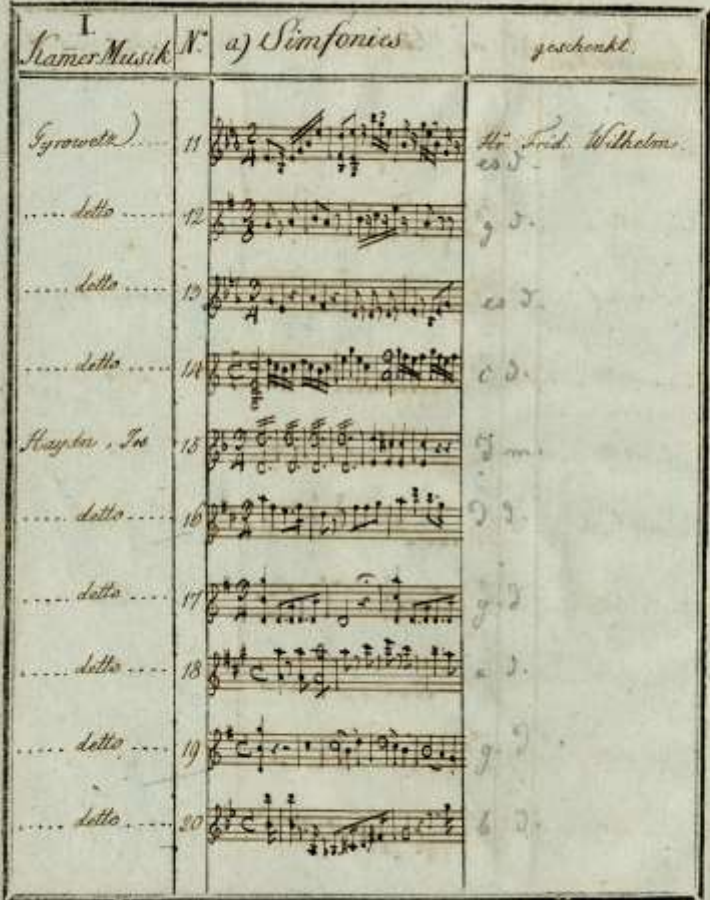 I.
Kam̅er Musik N.º a) Simfonies geschenkt.
Gyrowetz) ..... 11 Hr̅ Frid. Wilhelm.
es d.
..... detto ...... 12 g d.
..... detto ...... 13 es d.
..... detto ...... 14 c d.
Haydn, Jos 15 d m.
..... detto ..... 16 D d.
..... detto ..... 17 g. d
..... detto ..... 18 d.
..... detto .... 19 g. d
..... detto ..... 20 b d.